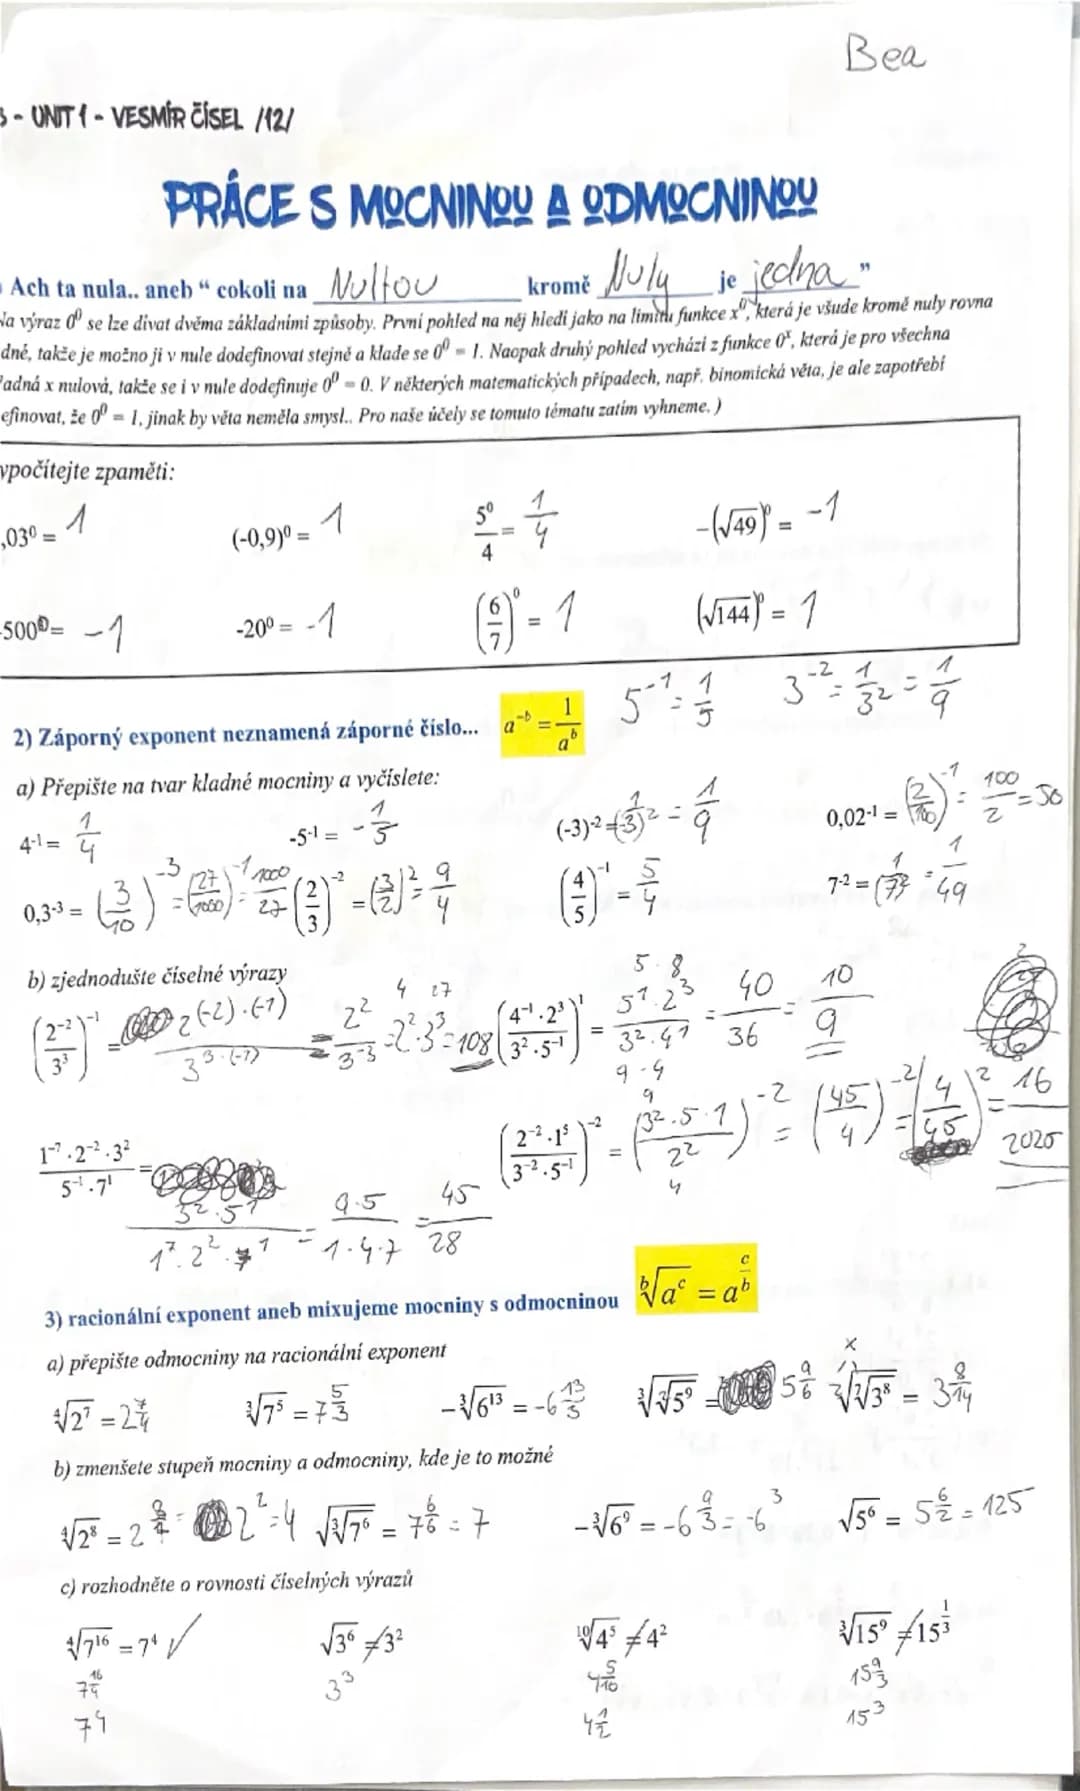 Bea
- UNIT 1 - VESMÍR ČÍSEL /12/
PRÁCE S MOCNINOU A ODMOCNINOU
Ach ta nula.. aneb “ cokoli na Nultou kromě Nuly je jedna ”
Na výraz 0⁰ se lze dívat dvěma základními způsoby. První pohled na něj hledí jako na limitu funkce x⁰, která je všude kromě nuly rovna
dné, takže je možno ji v nule dodefinovat stejně a klade se 0⁰ = 1. Naopak druhý pohled vychází z funkce 0ˣ, která je pro všechna
adná x nulová, takže se i v nule dodefinuje 0⁰ = 0. V některých matematických případech, např. binomická věta, je ale zapotřebí
efinovat, že 0⁰ = 1, jinak by věta neměla smysl.. Pro naše účely se tomuto tématu zatím vyhneme. )
ypočítejte zpaměti:
,03⁰ = 1 (-0,9)⁰ = 1 5⁰/4 = 1/4 -(√49)⁰ = -1
-500⁰ = -1 -20⁰ = -1 (6/7)⁰ = 1 (√144)⁰ = 1
5⁻¹ = 1/5 3⁻² = 1/3² = 1/9
2) Záporný exponent neznamená záporné číslo... a⁻ᵇ = 1/aᵇ
a) Přepište na tvar kladné mocniny a vyčíslete:
4⁻¹ = 1/4 -5⁻¹ = -1/5 (-3)⁻² = (1/-3)² = 1/9 0,02⁻¹ = (2/100)⁻¹ = 100/2 = 50
0,3⁻³ = (3/10)⁻³ = (27/1000)⁻¹ = 1000/27 (2/3)⁻² = (3/2)² = 9/4 (4/5)⁻¹ = 5/4 7⁻² = (1/7)² = 1/49
b) zjednodušte číselné výrazy
(2⁻²/3³)⁻¹ = 2^(-2)·(-1)/3^3·(-1) = 2²/3⁻³ = 2²·3³ = 108 4 27 (4⁻¹.2³/3².5⁻¹)¹ = 5¹.2³/3².4¹ = 40/36 = 10/9 5.8 9.4
1⁻⁷.2⁻².3²/5⁻¹.7¹ = 3².5¹/1⁷.2².7¹ = 9.5/1.4.7 = 45/28 (2⁻².1⁵/3⁻².5⁻¹)⁻² = (3².5.1/2²)⁻² = (45/4)⁻² = (4/45)² = 16/2025 9 4
3) racionální exponent aneb mixujeme mocniny s odmocninou ᵇ√aᶜ = a^(c/b)
a) přepište odmocniny na racionální exponent
⁴√2⁷ = 2^(7/4) ³√7⁵ = 7^(5/3) -³√6¹³ = -6^(13/3) ³√√5⁹ = 5^(9/6) ⁷√√3⁸ = 3^(8/14)
b) zmenšete stupeň mocniny a odmocniny, kde je to možné
⁴√2⁸ = 2^(8/4) = 2² = 4 √³√7⁶ = 7^(6/6) = 7 -³√6⁹ = -6^(9/3) = -6³ √5⁶ = 5^(6/2) = 125
c) rozhodněte o rovnosti číselných výrazů
⁴√7¹⁶ = 7⁴ ✓ √3⁶ ≠ 3² ¹⁰√4⁵ ≠ 4² ³√15⁹ ≠ 15^(1/3)
7^(16/4) 3³ 4^(5/10) 15^(9/3)
7⁴ 4^(1/2) 15³